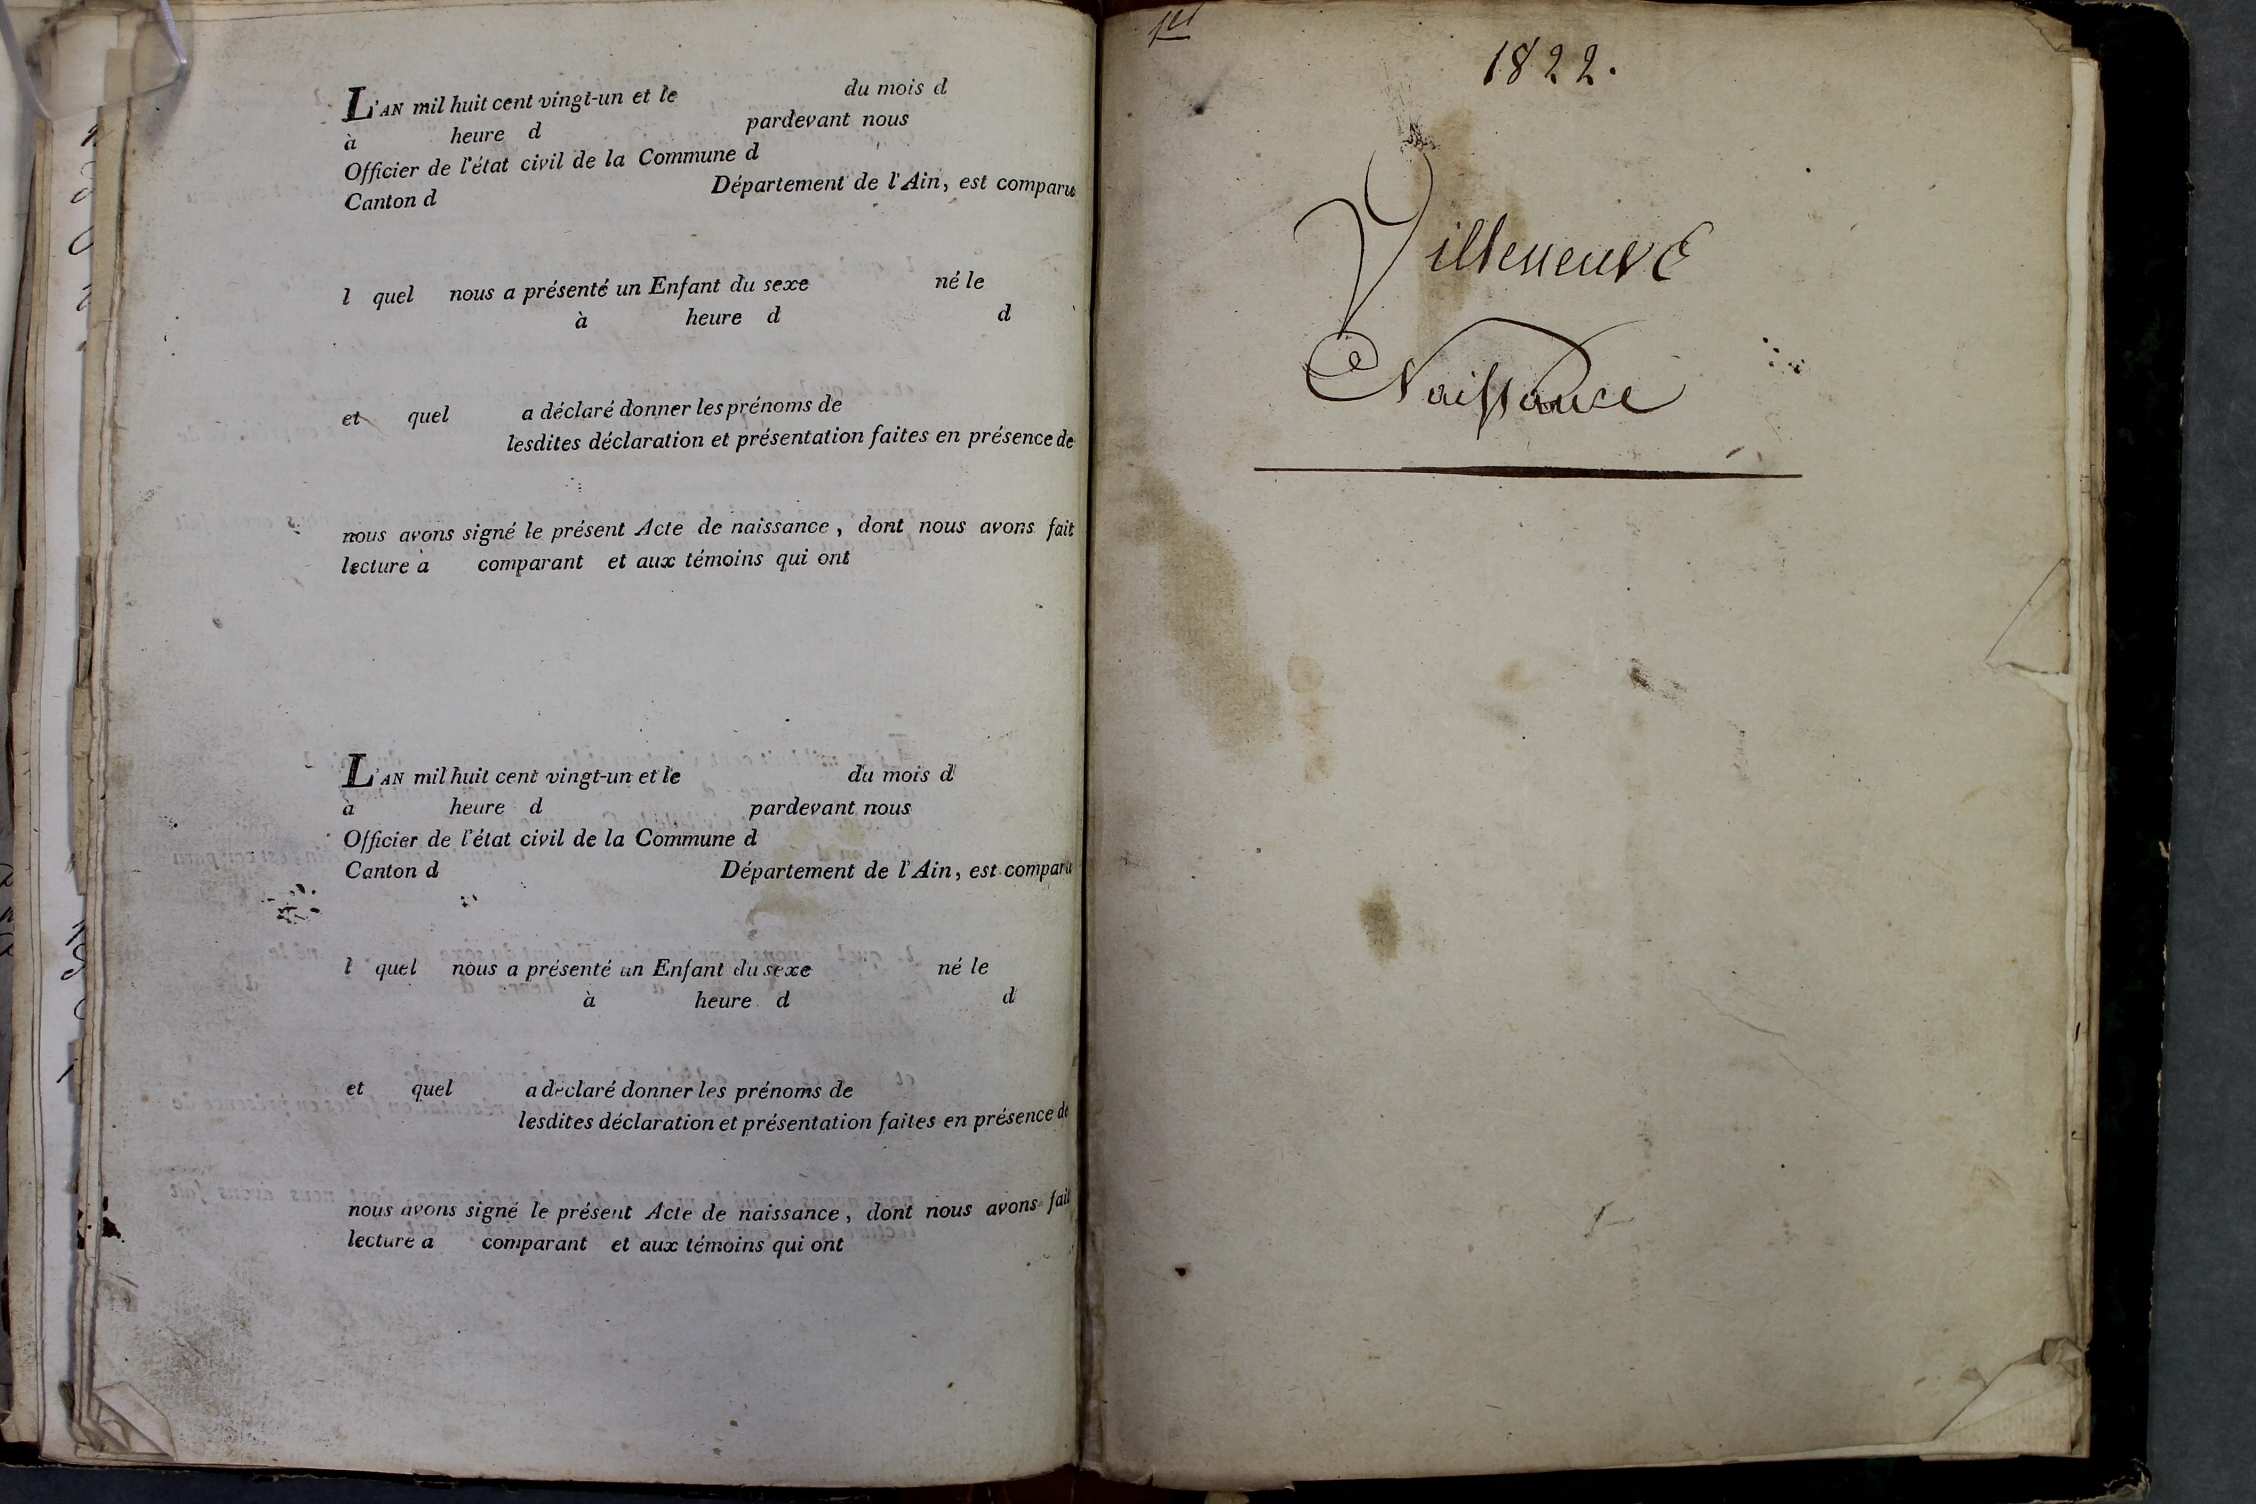 L'AN mil huit cent vingt-un et le du mois d
à heure d pardevant nous
Officier de l'état civil de la Commune d
Canton d Département de l'Ain, est comparu
l quel nous a présenté un Enfant du sexe né le
à heure d d
et quel a déclaré donner les prénoms de
lesdites déclaration et présentation faites en présence de
nous avons signé le présent Acte de naissance, dont nous avons fait
lecture à comparant et aux témoins qui ont
L'AN mil huit cent vingt-un et le du mois d
à heure d pardevant nous
Officier de l'état civil de la Commune d
Canton d Département de l'Ain, est comparu
l quel nous a présenté un Enfant du sexe né le
à heure d d
et quel a déclaré donner les prénoms de
lesdites déclaration et présentation faites en présence de
nous avons signé le présent Acte de naissance, dont nous avons fait
lecture a comparant et aux témoins qui ont
1er
1822.
Villeneuve
Naissance